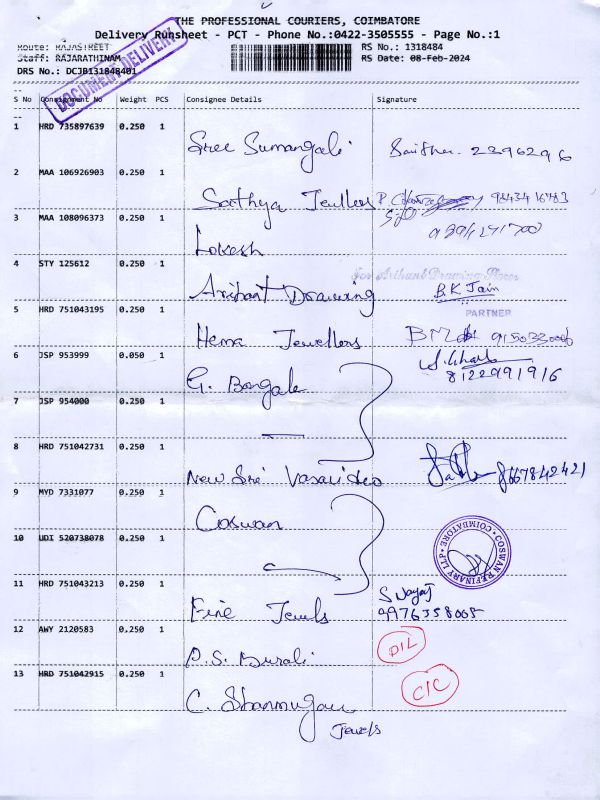 THE PROFESSIONAL COURIERS, COIMBATORE
Delivery Runsheet - PCT - Phone No.:0422-3505555 - Page No.:1
Route: RAJASTREET
RS No.: 1318484
Staff: RAJARATHINAM
RS Date: 08-Feb-2024
DRS No.: DCJB131848401
DOCUMENT DELIVERY
S No Consignment No Weight PCS Consignee Details Signature
1 HRD 735897639 0.250 1
Sree Sumangali 22962296
2 MAA 106926903 0.250 1
Sathya Jewllers 98434 16783
3 MAA 108096373 0.250 1
Lokesh
4 STY 125612 0.250 1
For Arihant Drawing Works
Arihant Drawing B.K Jain
PARTNER
5 HRD 751043195 0.250 1
Hema Jewellers
6 JSP 953999 0.050 1
G. Bangale 8122991916
7 JSP 954000 0.250 1
8 HRD 751042731 0.250 1
New Sri 8667842421
9 MYD 7331077 0.250 1
Coswan
10 UDI 520738078 0.250 1
COSWAN REFINARY LLP COIMBATORE
11 HRD 751043213 0.250 1
Fine Jewels 9976358008
12 AWY 2120583 0.250 1
P.S. Murali D/L
13 HRD 751042915 0.250 1
C. Shanmugam C/C
Jewels